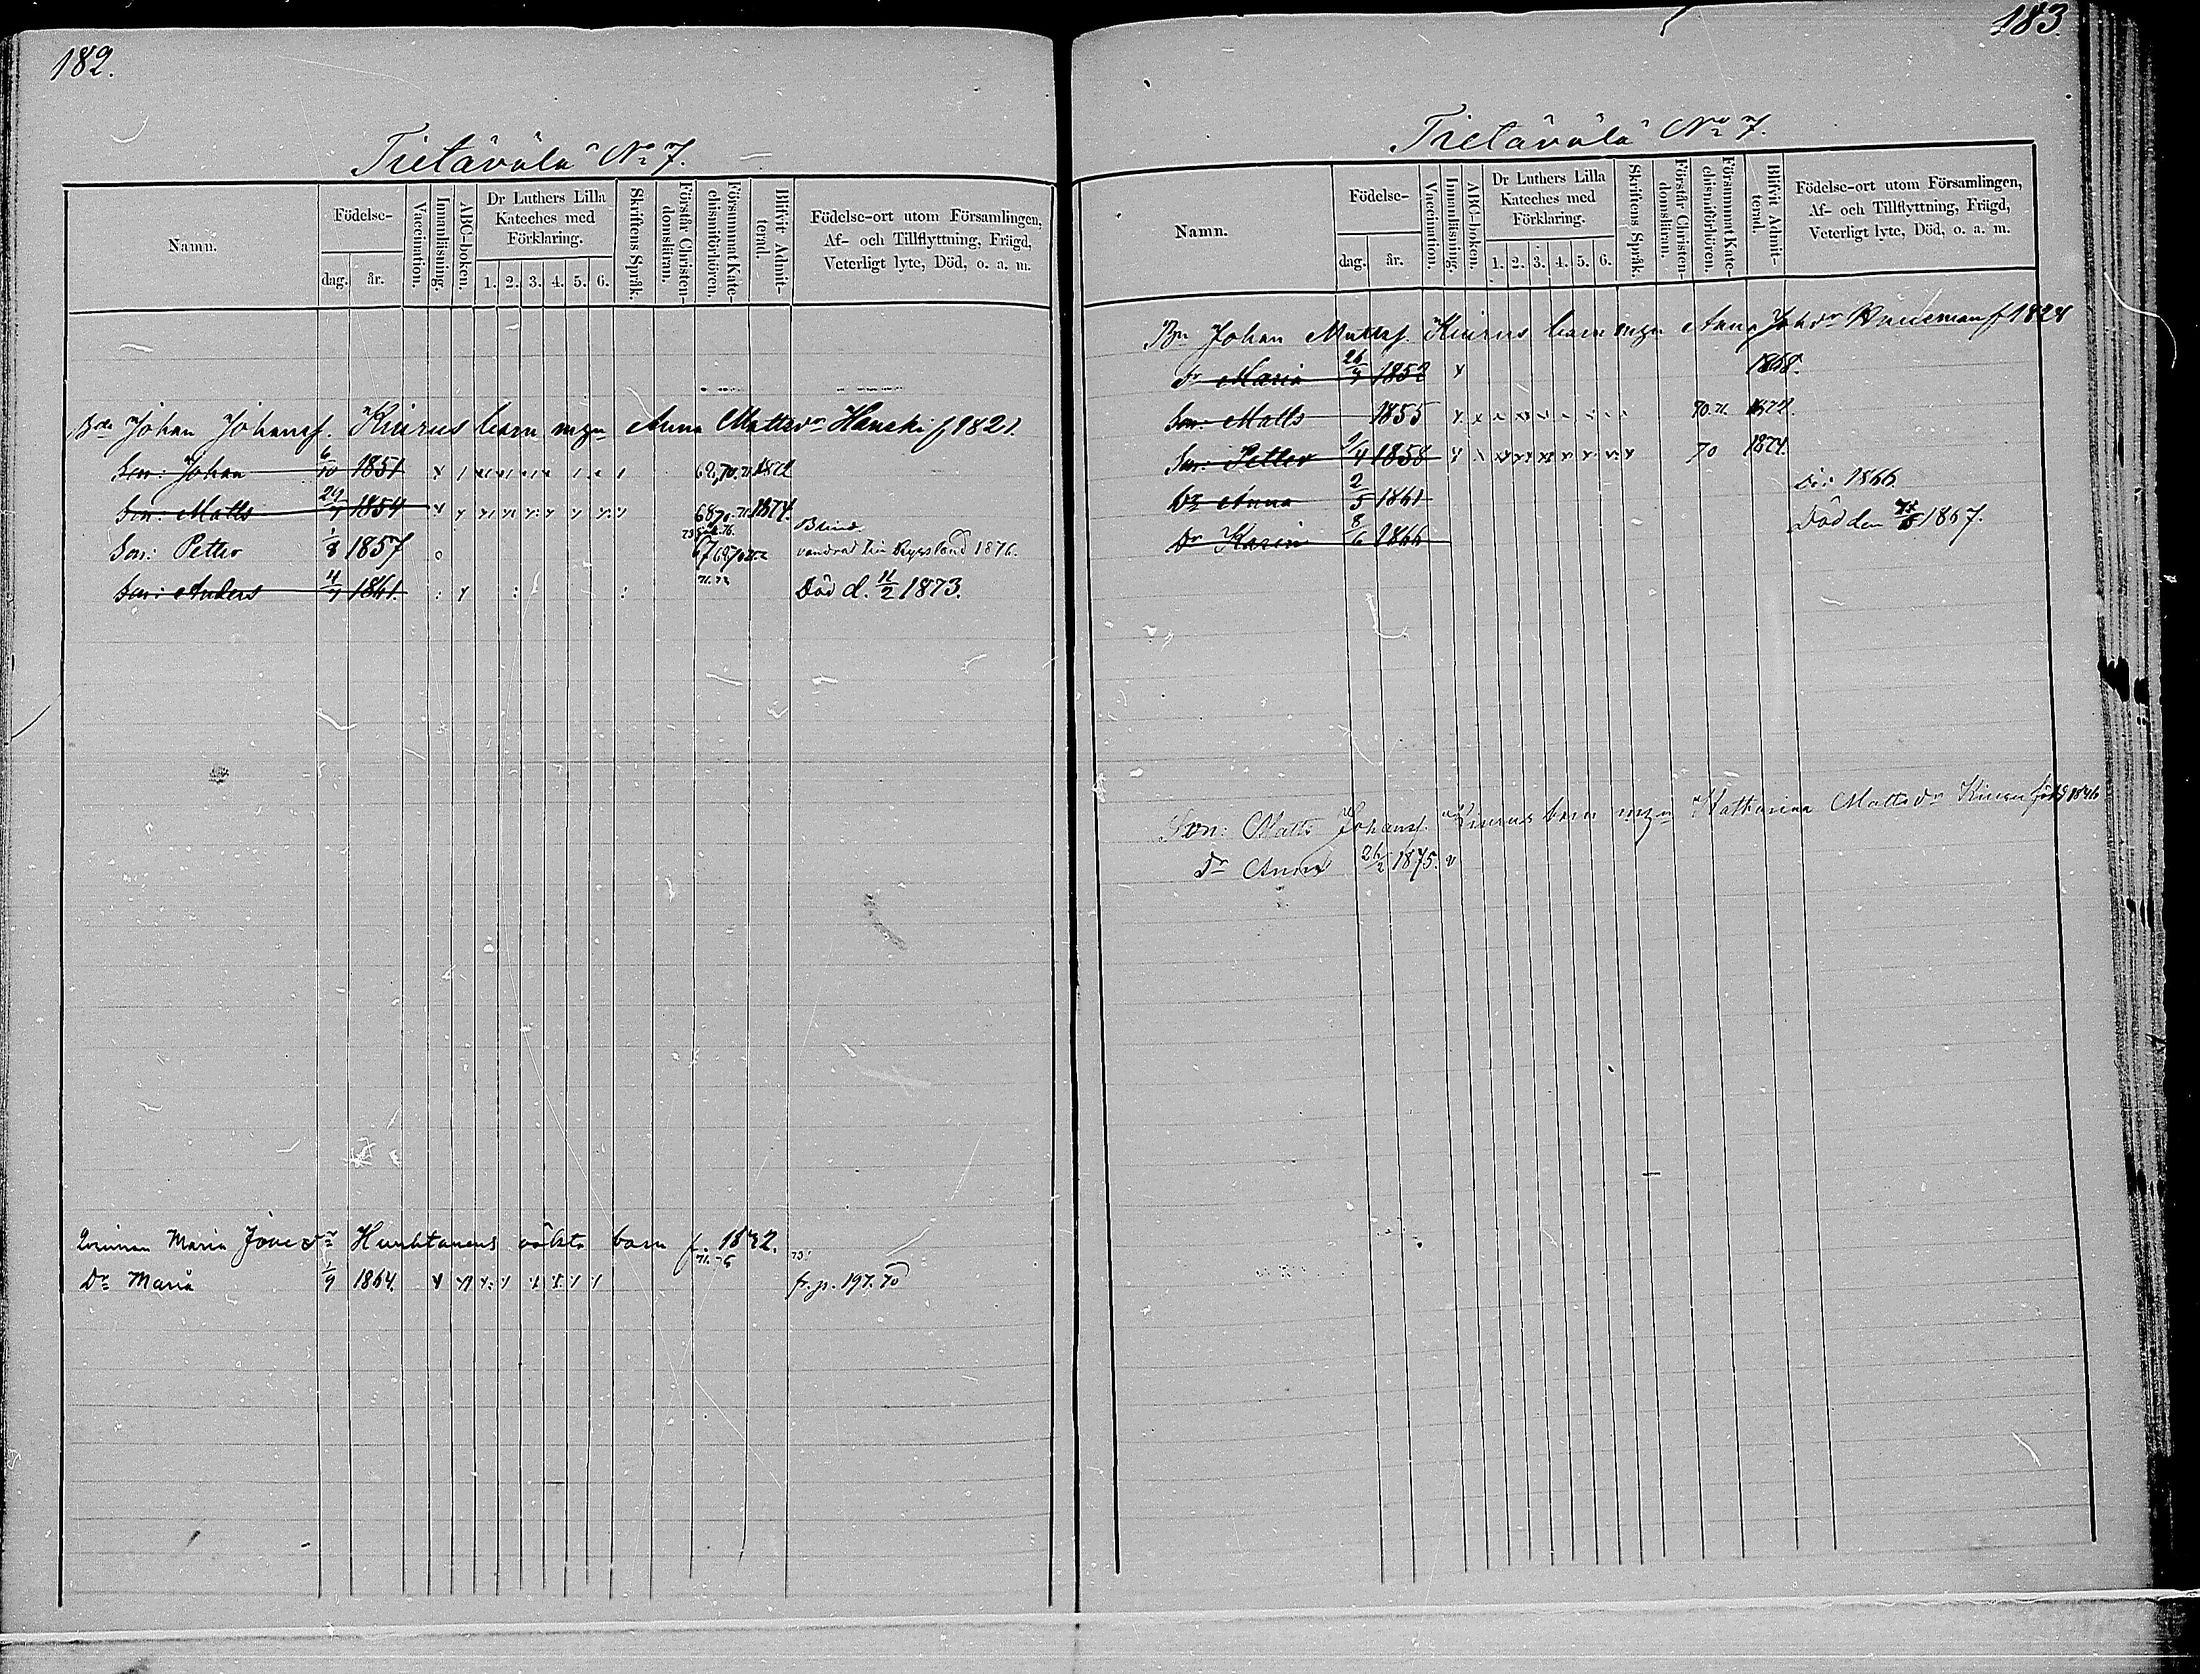 182.
Tietäväla No 7.
Namn.
Födelse-
dag.
år.
Vaccination.
Innanläsning.
ABC-boken.
Dr Luthers Lilla
Kateches med
Förklaring.
1. 2. 3. 4. 5. 6.
Skriftens Språk.
Förstår Christen-
domsläran.
Försummat Kate-
chismiförhören.
Blifvit Admit-
terad.
Födelse-ort utom Församlingen,
Af- och Tillflyttning, Frägd,
Veterligt lyte, Död, o. a. m.
Johan Johansf. Kiurus barn m Anna Mattsdr Hanski f 1821.
Son: Johan 6/10 1851 1872
Son: Matts 24/7 1854 1874.
Son: Petter 1/8 1857 Blind vandrat till Ryssland 1876.
Son: Anders 4/7 1861. Död d. 11/2 1873.
Qvinnan Maria Huuhtanens oäkta barn f. 1832.
Dr Maria 1/9 1864. fr. p. 197. 70
183.
Tietäväla No 7.
Namn.
Födelse-
dag.
år.
Vaccination.
Innanläsning.
ABC-boken.
Dr Luthers Lilla
Kateches med
Förklaring.
1. 2. 3. 4. 5. 6.
Skriftens Språk.
Förstår Christen-
domsläran.
Försummat Kate-
chismiförhören.
Blifvit Admit-
terad.
Födelse-ort utom Församlingen,
Af- och Tillflyttning, Frägd,
Veterligt lyte, Död, o. a. m.
Bn Johan Mattsf. Kiurus barn m Anna Johdr f 1824
Dr Maria 26/9 1852 1868.
Son: Matts 1855 70. 71. 1872.
Son: Petter 1858 70 1874.
Dr Anna 2/5 1861 Dö: 1866
Dr Karin 8/6 1866 Död den 1867.
Son: Matts Johansf. Kiurus barn m Katharina Mattsdr född 1846
Dr Anna 26/2 1875. v